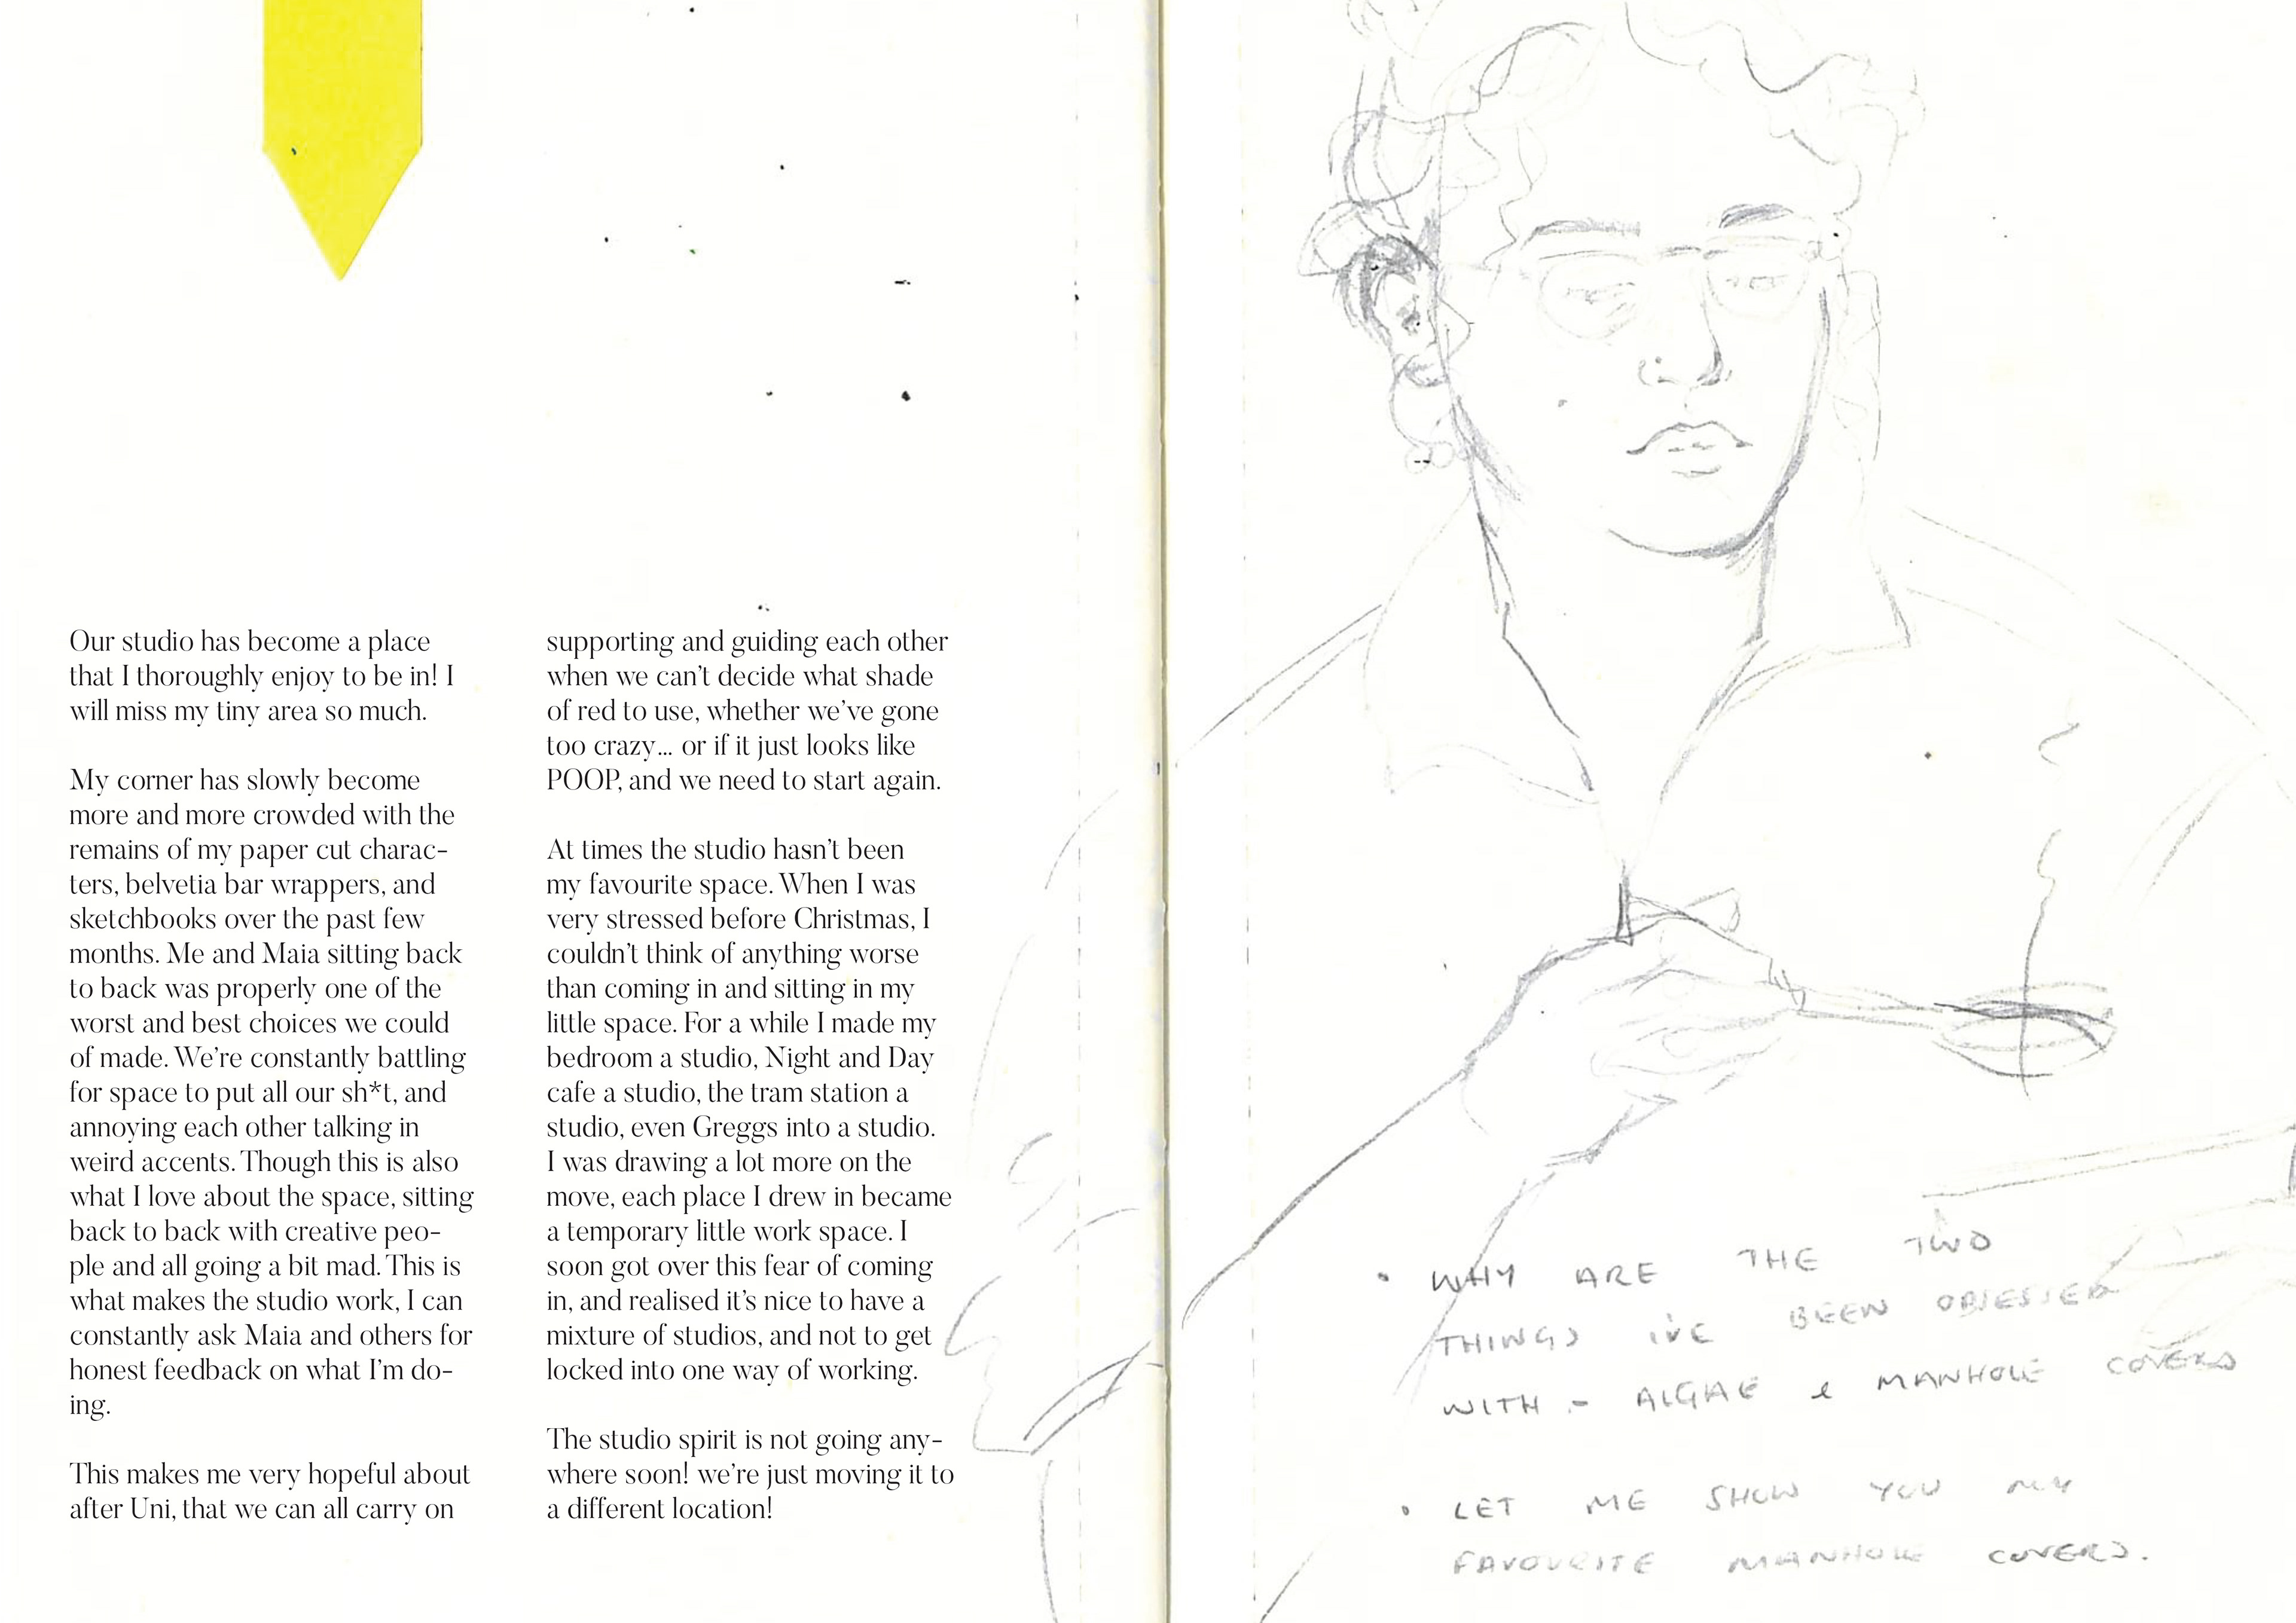 Our studio has become a place
that I thoroughly enjoy to be in! I
will miss my tiny area so much.
My corner has slowly become
more and more crowded with the
remains of my paper cut charac-
ters, belvetia bar wrappers, and
sketchbooks over the past few
months. Me and Maia sitting back
to back was properly one of the
worst and best choices we could
of made. We're constantly battling
for space to put all our sh*t, and
annoying each other talking in
weird accents. Though this is also
what I love about the space, sitting
back to back with creative peo-
ple and all going a bit mad. This is
what makes the studio work, I can
constantly ask Maia and others for
honest feedback on what I'm do-
ing.
This makes me very hopeful about
after Uni, that we can all carry on
supporting and guiding each other
when we can't decide what shade
of red to use, whether we've gone
too crazy... or if it just looks like
POOP, and we need to start again.
At times the studio hasn't been
my favourite space. When I was
very stressed before Christmas, I
couldn't think of anything worse
than coming in and sitting in my
little space. For a while I made my
bedroom a studio, Night and Day
cafe a studio, the tram station a
studio, even Greggs into a studio.
I was drawing a lot more on the
move, each place I drew in became
a temporary little work space. I
soon got over this fear of coming
in, and realised it's nice to have a
mixture of studios, and not to get
locked into one way of working.
The studio spirit is not going any-
where soon! we're just moving it to
a different location!
• WHY ARE THE TWO
THINGS I'VE BEEN OBSESSED
WITH - ALGAE & MANHOLE COVERS
• LET ME SHOW YOU MY
FAVOURITE MANHOLE COVERS.